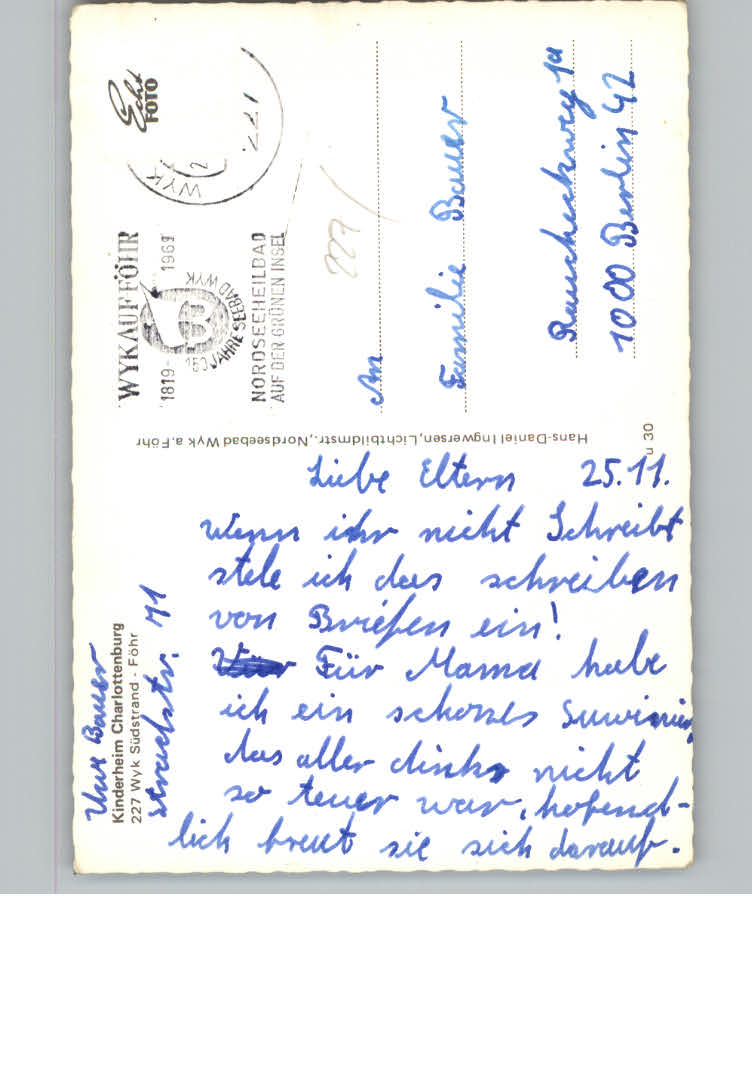 Uwe Bauer
Kinderheim Charlottenburg
227 Wyk Südstrand - Föhr
71
Liebe Eltern 25.11.
wenn ihr nicht Schreibt
stele ich das schreiben
von Briefen ein!
Für Mama habe
ich ein schones Suwinier,
das aller dinks nicht
so teuer war, hofend-
lich freut sie sich darauf.
Hans-Daniel Ingwersen, Lichtbildmstr., Nordseebad Wyk a. Föhr
u 30
Echt
FOTO
WYK
221
WYK AUF FÖHR
1819- 1969
150 JAHRE SEEBAD WYK
NORDSEEHEILBAD
AUF DER GRÜNEN INSEL
227
An
Familie Bauer
Rauscheckweg 1a
1000 Berlin 42